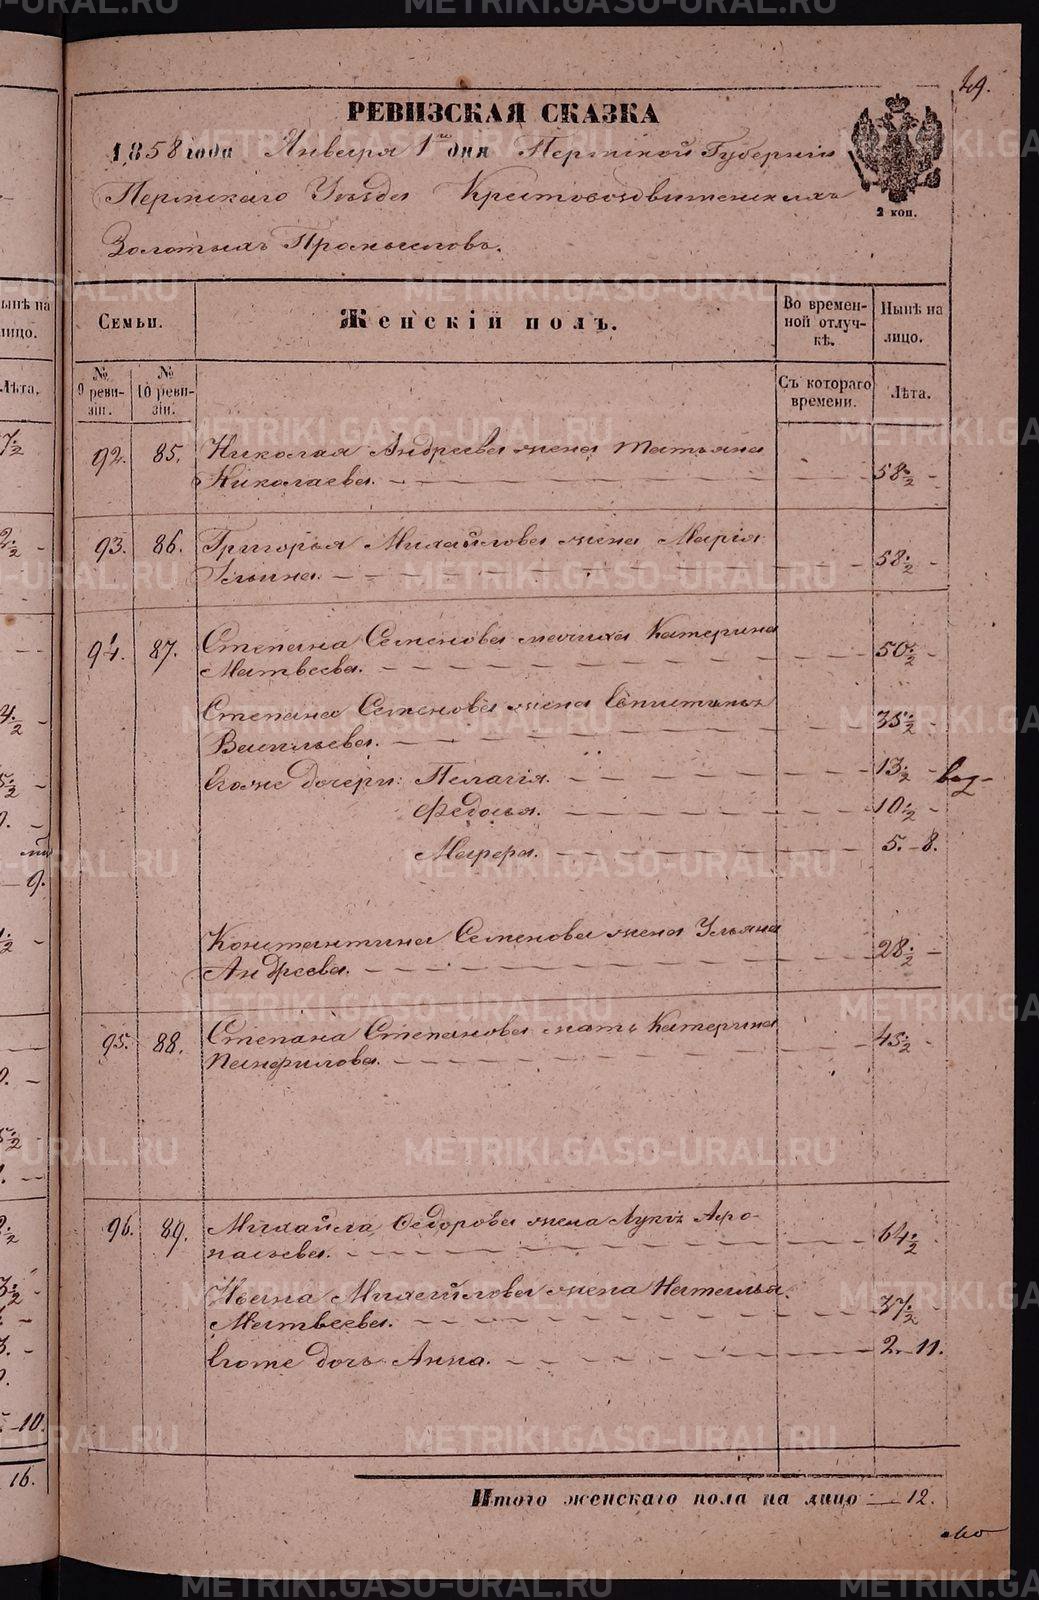 49.
РЕВИЗСКАЯ СКАЗКА
1858 года Января 1го дня Пермской Губерніи
Пермскаго Уѣзда Крестовоздвиженскихъ
Золотыхъ Промысловъ.
2 коп.
Семьи.
Женскій полъ.
Во временной отлучкѣ.
Нынѣ на лицо.
№ 9 ревизіи.
№ 10 ревизіи.
Съ котораго времени.
Лѣта.
92. 85. Николая Андреева жена Татьяна
Николаева. 58 ½
93. 86. Григорья Михайлова жена Марія
Ильина. 58 ½
94. 87. Степана Семенова мачиха Катерина
Матвеева. 50 ½
Степана Семенова жена
Васильева. 35 ½
Егоже дочери: Пелагія. 13 ½
Федосья. 10 ½
Марфа. 5. 8.
Константина Семенова жена Ульяна
Андреева. 28 ½
95. 88. Степана Степанова мать Катерина
Панфилова. 45 ½
96. 89. Михайла Федорова жена Лукія Афо-
насьева. 64 ½
Ивана Михайлова жена Наталья
Матвеева. 37 ½
Егоже дочь Анна. 2. 11.
Итого женскаго пола на лицо 12.
METRIKI.GASO-URAL.RU